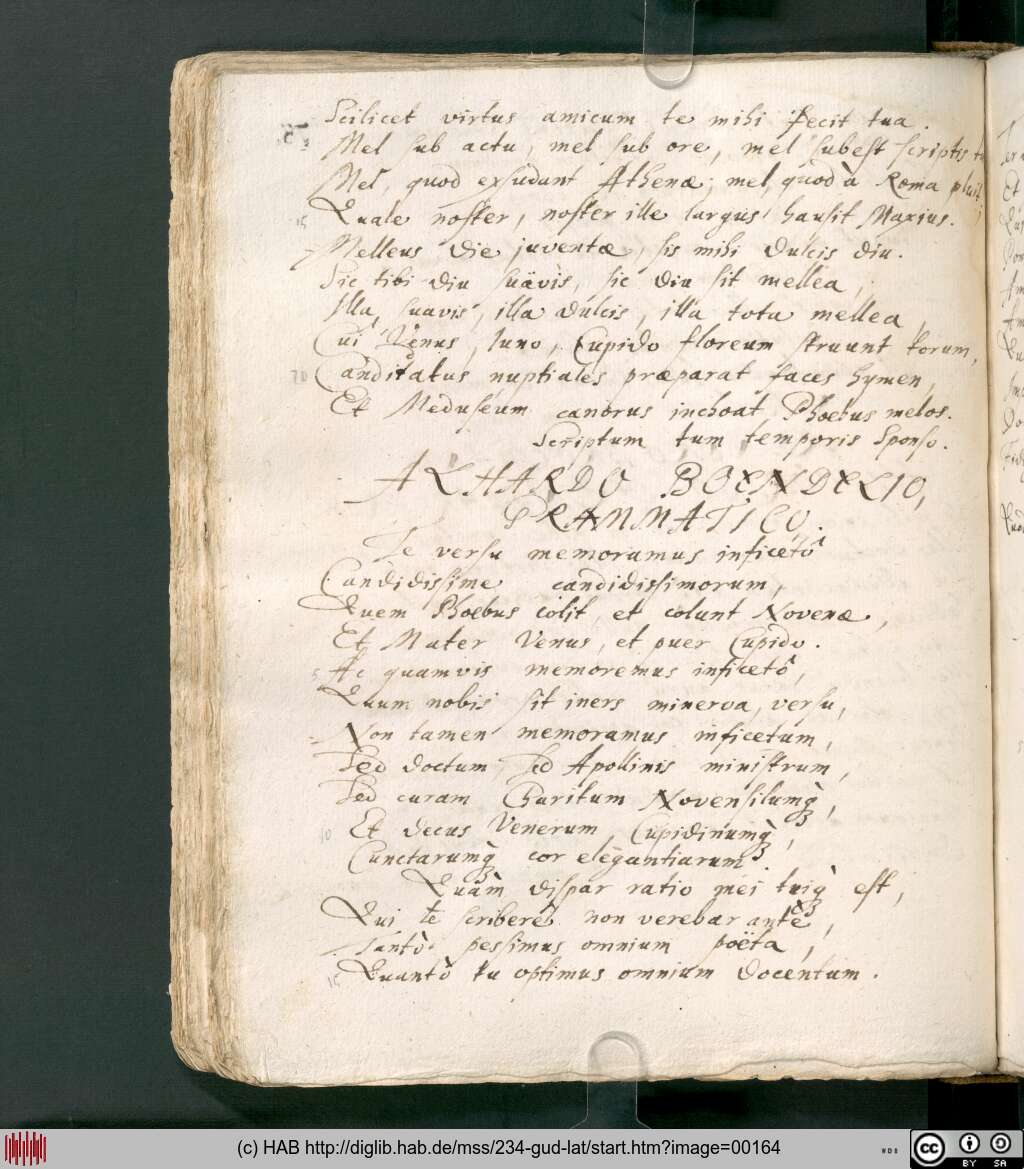 Scilicet virtus amicum te mihi fecit tua.
Mel sub actu, mel sub ore, mel subest scriptis
Mel, quod exsudant Athenæ; mel, quod à Roma pluit;
Quale noster, noster ille largus hausit Marius.
15
Melleus die juventæ, sis mihi dulcis diu.
Sic tibi diu suävis, sic diu sit mellea,
Illa suavis, illa dulcis, illa tota mellea,
Cui Venus, Iuno, Cupido floreum struunt torum,
Candidatus nuptiales præparat faces hymen,
20
Et Meduséum canorus inchoat Phoebus melos.
Scriptum tum temporis Sponso.
ALHARDO BOENDELIO,
GRAMMATICO.
Te versu memoramus inficetô
Candidissime candidissimorum,
Quem Phoebus colit, et colunt Novenæ,
Et Mater Venus, et puer Cupido.
5
Ac quamvis memoremus inficetô,
Quum nobis sit iners minerva, versu,
Non tamen memoramus inficetum,
Sed doctum, sed Apollinis ministrum,
Sed curam Charitum Novensilumq́ꝫ,
10
Et decus Venerum, Cupidinumq́ꝫ,
Cunctarumq́ꝫ cor elegantiarum.
Quàm dispar ratio mei tuiq́ꝫ est,
Qui te scribere non verebar antè,
Tantò pessimus omnium poëta,
15
Quantò tu optimus omnium docentum.
(c) HAB http://diglib.hab.de/mss/234-gud-lat/start.htm?image=00164
cc BY SA